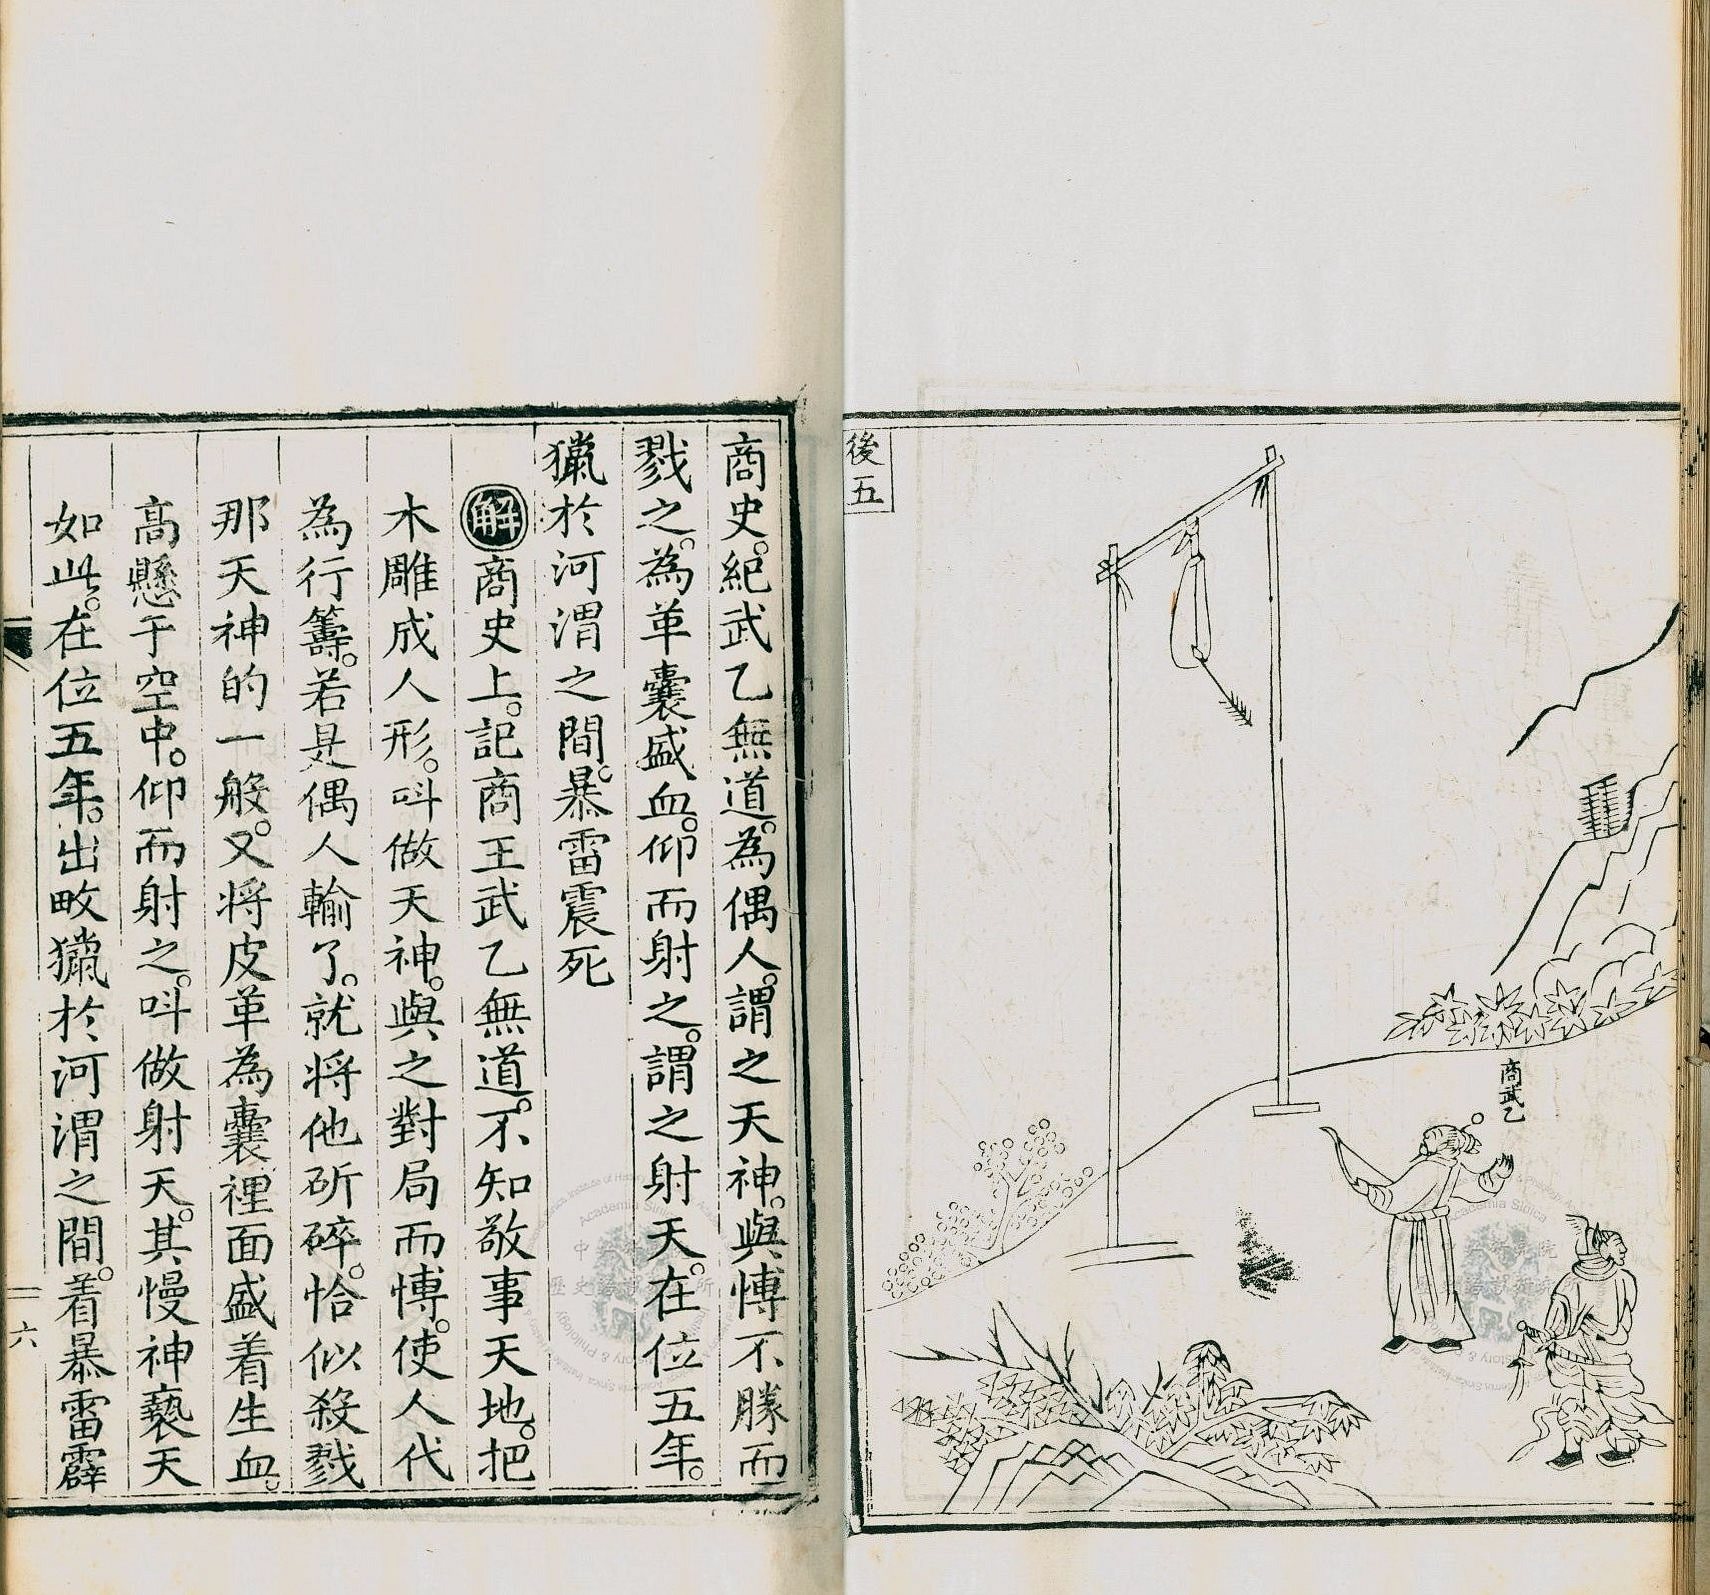 後五
商武乙
商史。紀武乙無道。為偶人。謂之天神。與博不勝而
戮之。為革囊盛血。仰而射之。謂之射天。在位五年。
獵於河渭之間。暴雷震死
解商史上。記商王武乙無道。不知敬事天地。把
木雕成人形。叫做天神。與之對局而博。使人代
為行籌。若是偶人輸了。就将他斫碎。恰似殺戮
那天神的一般。又将皮革為囊。裡面盛着生血。
高懸于空中。仰而射之。叫做射天。其慢神褻天
如此。在位五年。出畋獵於河渭之間。着暴雷霹
六